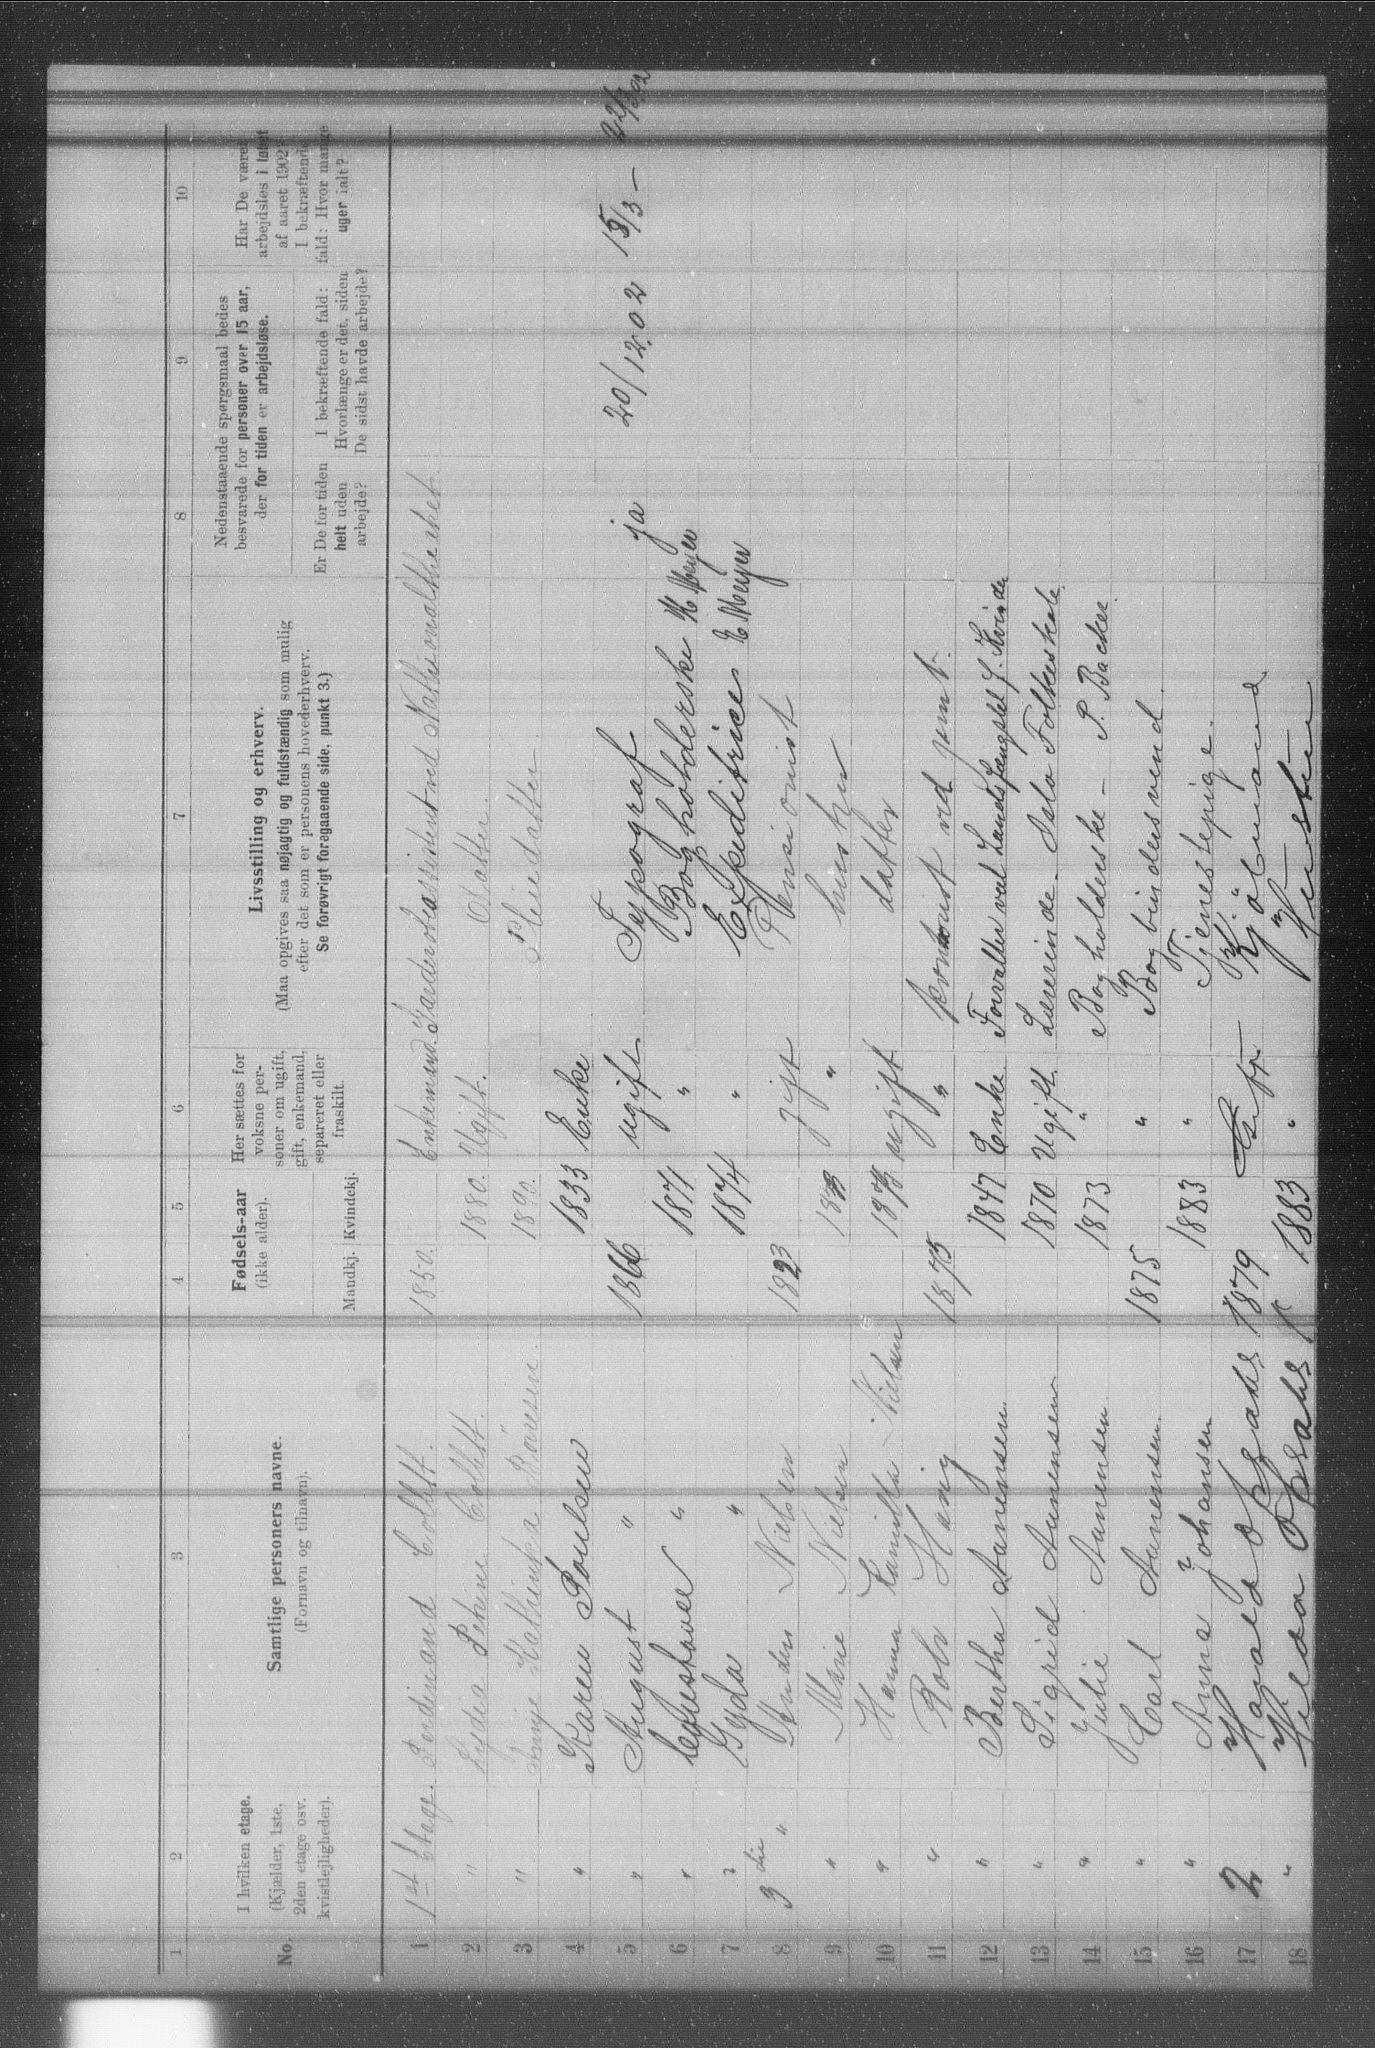 1 2 3 4 5 6 7 8 9 10
No.
I hvilken etage.
(Kjælder, 1ste,
2den etage osv.
kvistlejligheder).
Samtlige personers navne.
(Fornavn og tilnavn).
Fødsels-aar
(ikke alder).
Mandkj. Kvindekj.
Her sættes for
voksne per-
soner om ugift,
gift, enkemand,
separeret eller
fraskilt.
Livsstilling og erhverv.
(Maa opgives saa nøjagtig og fuldstændig som mulig
efter det som er personens hovederhverv.
Se forøvrigt foregaaende side, punkt 3.)
Nedenstaaende spørgsmaal bedes
besvarede for personer over 15 aar,
der for tiden er arbejdsløse.
Er De for tiden
helt uden
arbejde?
I bekræftende fald:
Hvorlænge er det, siden
De sidst havde arbejde?
Har De været
arbejdsløs i løbet
af aaret 1902?
I bekræftende
fald: Hvor mange
uger ialt?
1 1st Etage. Ferdinand Collett. 1850. Enkemand. Garderobeassistent ved Nationaltheatret
2 " Lydia Petrine Collett. 1880. Ugift. Datter.
3 " Kathinka 1890. Pleiedatter.
4 " Karen Poulsen 1833 Enke
5 " August " 1866 ugift Typograf ja 20/12.02 15/3 —
6 " " 1871 " Bogholderske Meyer
7 " Gyda " 1874 " Expeditrice E. Meyer
8 3die " Anders Nielsen 1823 gift Pensionist
9 " Marie Nielsen " hustru
10 " Hanna Kamilla Nielsen ugift datter
11 " 1875 "
12 " Bertha Aanensen 1847 Enke. Forvalter ved Landsfængslet f. Kvinder
13 " Sigrid Aanensen 1870 Ugift. Lærerinde. Oslo Folkeskole
14 " Julie Aanensen 1873 " Bogholderske — P. Backer.
15 " Carl Aanensen 1875 " Bogbindersvend.
16 " Anna Johansen 1883 " Tjenestepige.
17 2 Harald Opsahl 1879 Gift Kjøbmand
18 " Hilda Opsahl 1883 " Hustru